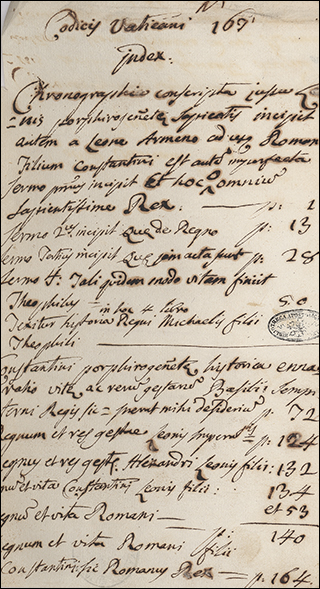 Codicis Vaticani 167
index.
Chronographie conscripta jussu
porphirogenete Sapientis incipit
autem a Leone Armeno ad usq Roman
Filium Constantini est autem imperfecta
Sermo primus incipit Et hoc o omnium
Sapientissime Rex. — p: 1
Sermo 2us incipit que de Regno p: 13
Sermo Tertius incipit Que jam acta sunt p: 28
Sermo 4: Tali quidem modo vitam finiit
Theophilus — in hoc 4 libro 50
historia Regis Michaelis filii
Theophili
Constantini porphirogenete historica enna
ratio vite ac rerum gestarum Basilii
Regis sic = mihi desiderium p: 72
Regnum et res geste Leonis p: 124
Regnum et res geste Alexandri Leonis filii: 132
et vita Constantini Leonis filii: 134
et 53
et vita Romani — 140
Regnum et vita Romani filii
Constantini sic Romanus Rex — p: 164.